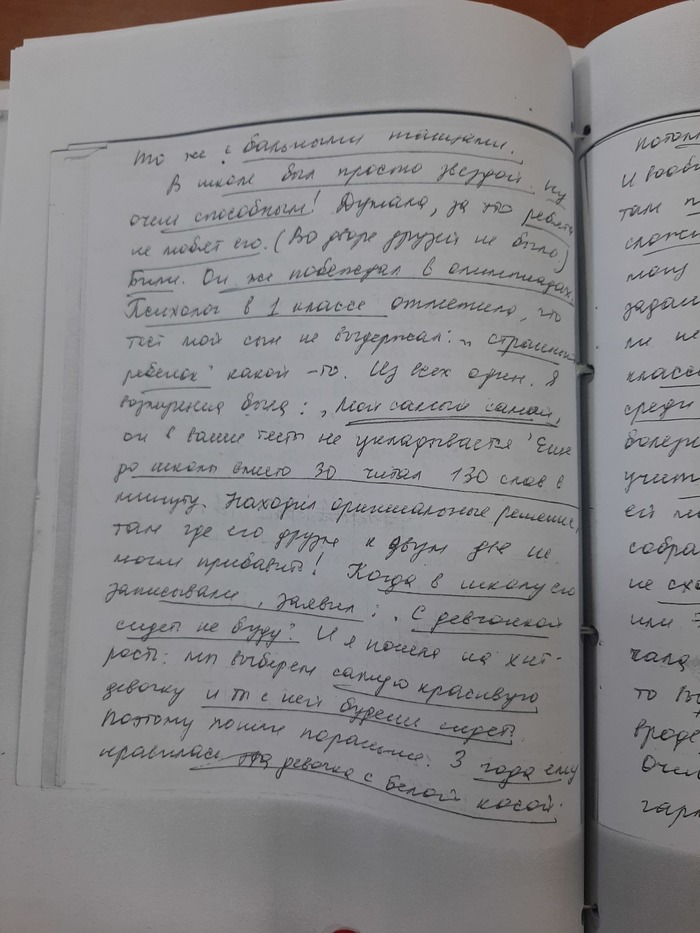 То же с бальными танцами.
В школе был просто звездой. Ну
очень способным! Думала, за это ребята
не любят его. (Во дворе друзей не было)
Били. Он же побеждал в олимпиадах.
Психолог в 1 классе отметила, что
тест мой сын не выдержал: „странный
ребенок" какой-то. Из всех один. Я
возмущена была: „Мой самый самый,
он в ваши тесты не укладывается" Еще
до школы вместо 30 читал 130 слов в
минуту. Находил оригинальные решения,
там где его друзья к двум две не
могли прибавить! Когда в школу его
записывали, заявил: „С девчонкой
сидеть не буду" И я пошла на хит-
рость: мы выберем самую красивую
девочку и ты с ней будешь сидеть.
Поэтому пошли пораньше. 3 года ему
нравилась та девочка с белой косой.
потом
И вооб
там
слож
могу
задал
ли не
класс
среди
болез
учит
ей
собра
не сх
или
чала
то
вроде
Очен
гарм